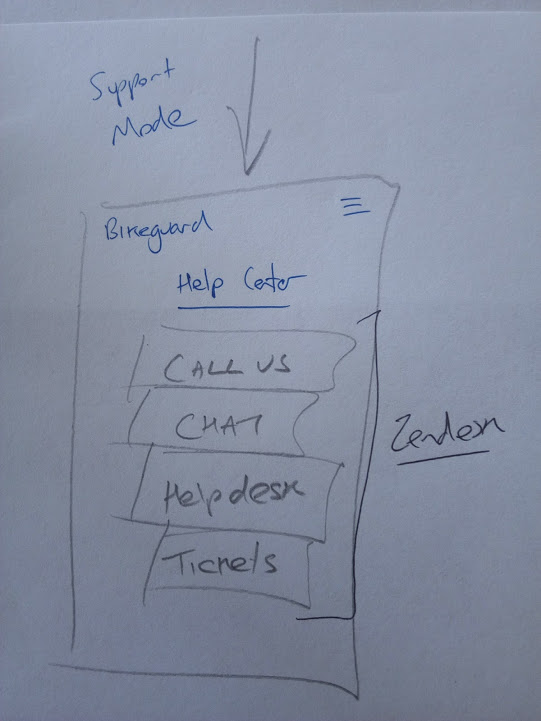 Support
Mode
Bikeguard
Help Center
CALL US
CHAT
Helpdesk
Zendesk
Tickets